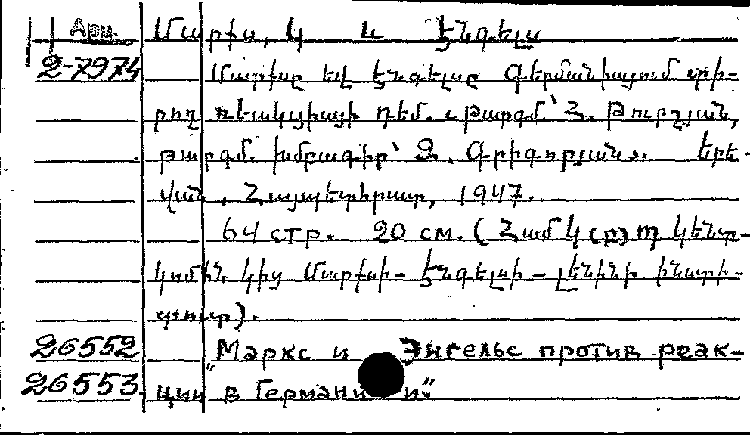 Арм. Մարքս, Կ և Էնգելս
2-7974 Մարքսը եվ Էնգելսը Գերմանիայում տի-
րող ռեակցիայի դեմ. Թարգմ՝ Հ. Թուրշյան,
թարգմ. խմբագիր՝ Զ. Գրիգորյան. Երե-
վան, Հայպետհրատ, 1947.
64 стр. 20 см. (Համ Կ(բ)Պ Կենտ-
կոմին կից Մարքսի-Էնգելսի-Լենինի ինստի-
տուտ).
26552 „Маркс и Энгельс против реак-
26553 ции в Германии“